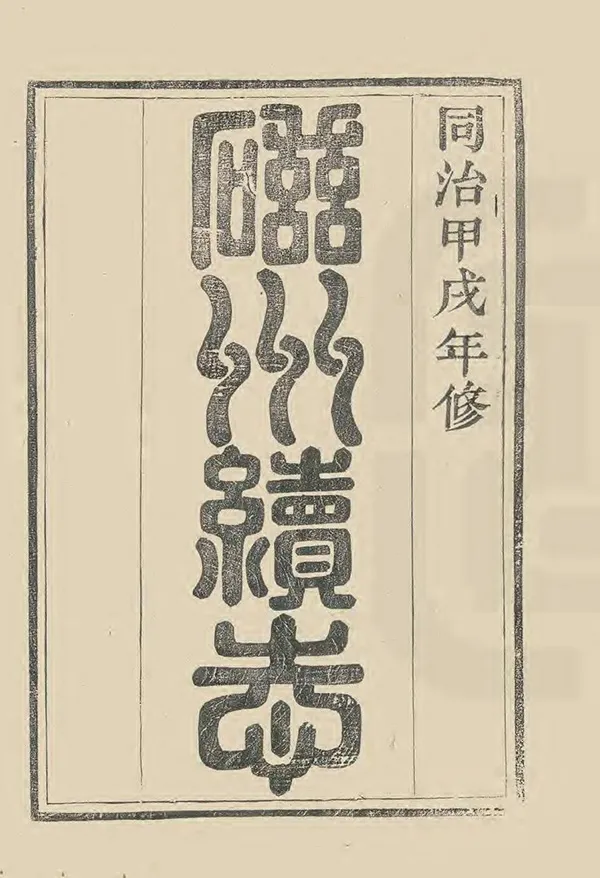 同治甲戌年修
磁州續志